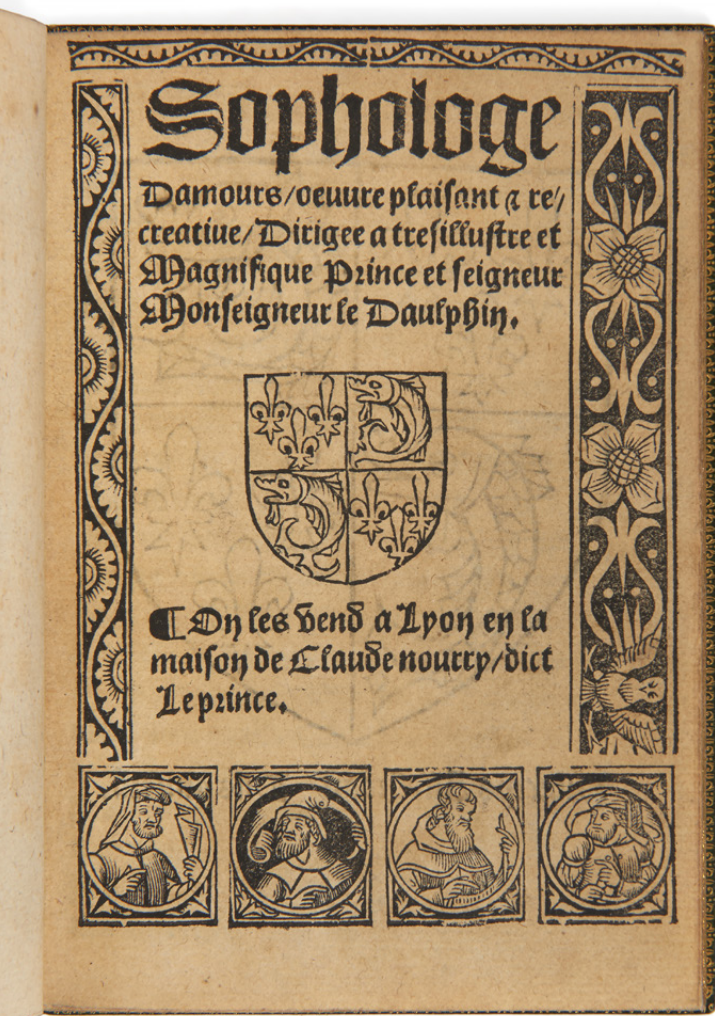 Sophologe
Damours/oeuure plaisant ⁊ re//
creatiue/Dirigee a tresillustre et
Magnifique Prince et seigneur
Monseigneur le Daulphin.
¶ On les vend a Lyon en la
maison de Claude nourry/dict
Le prince.